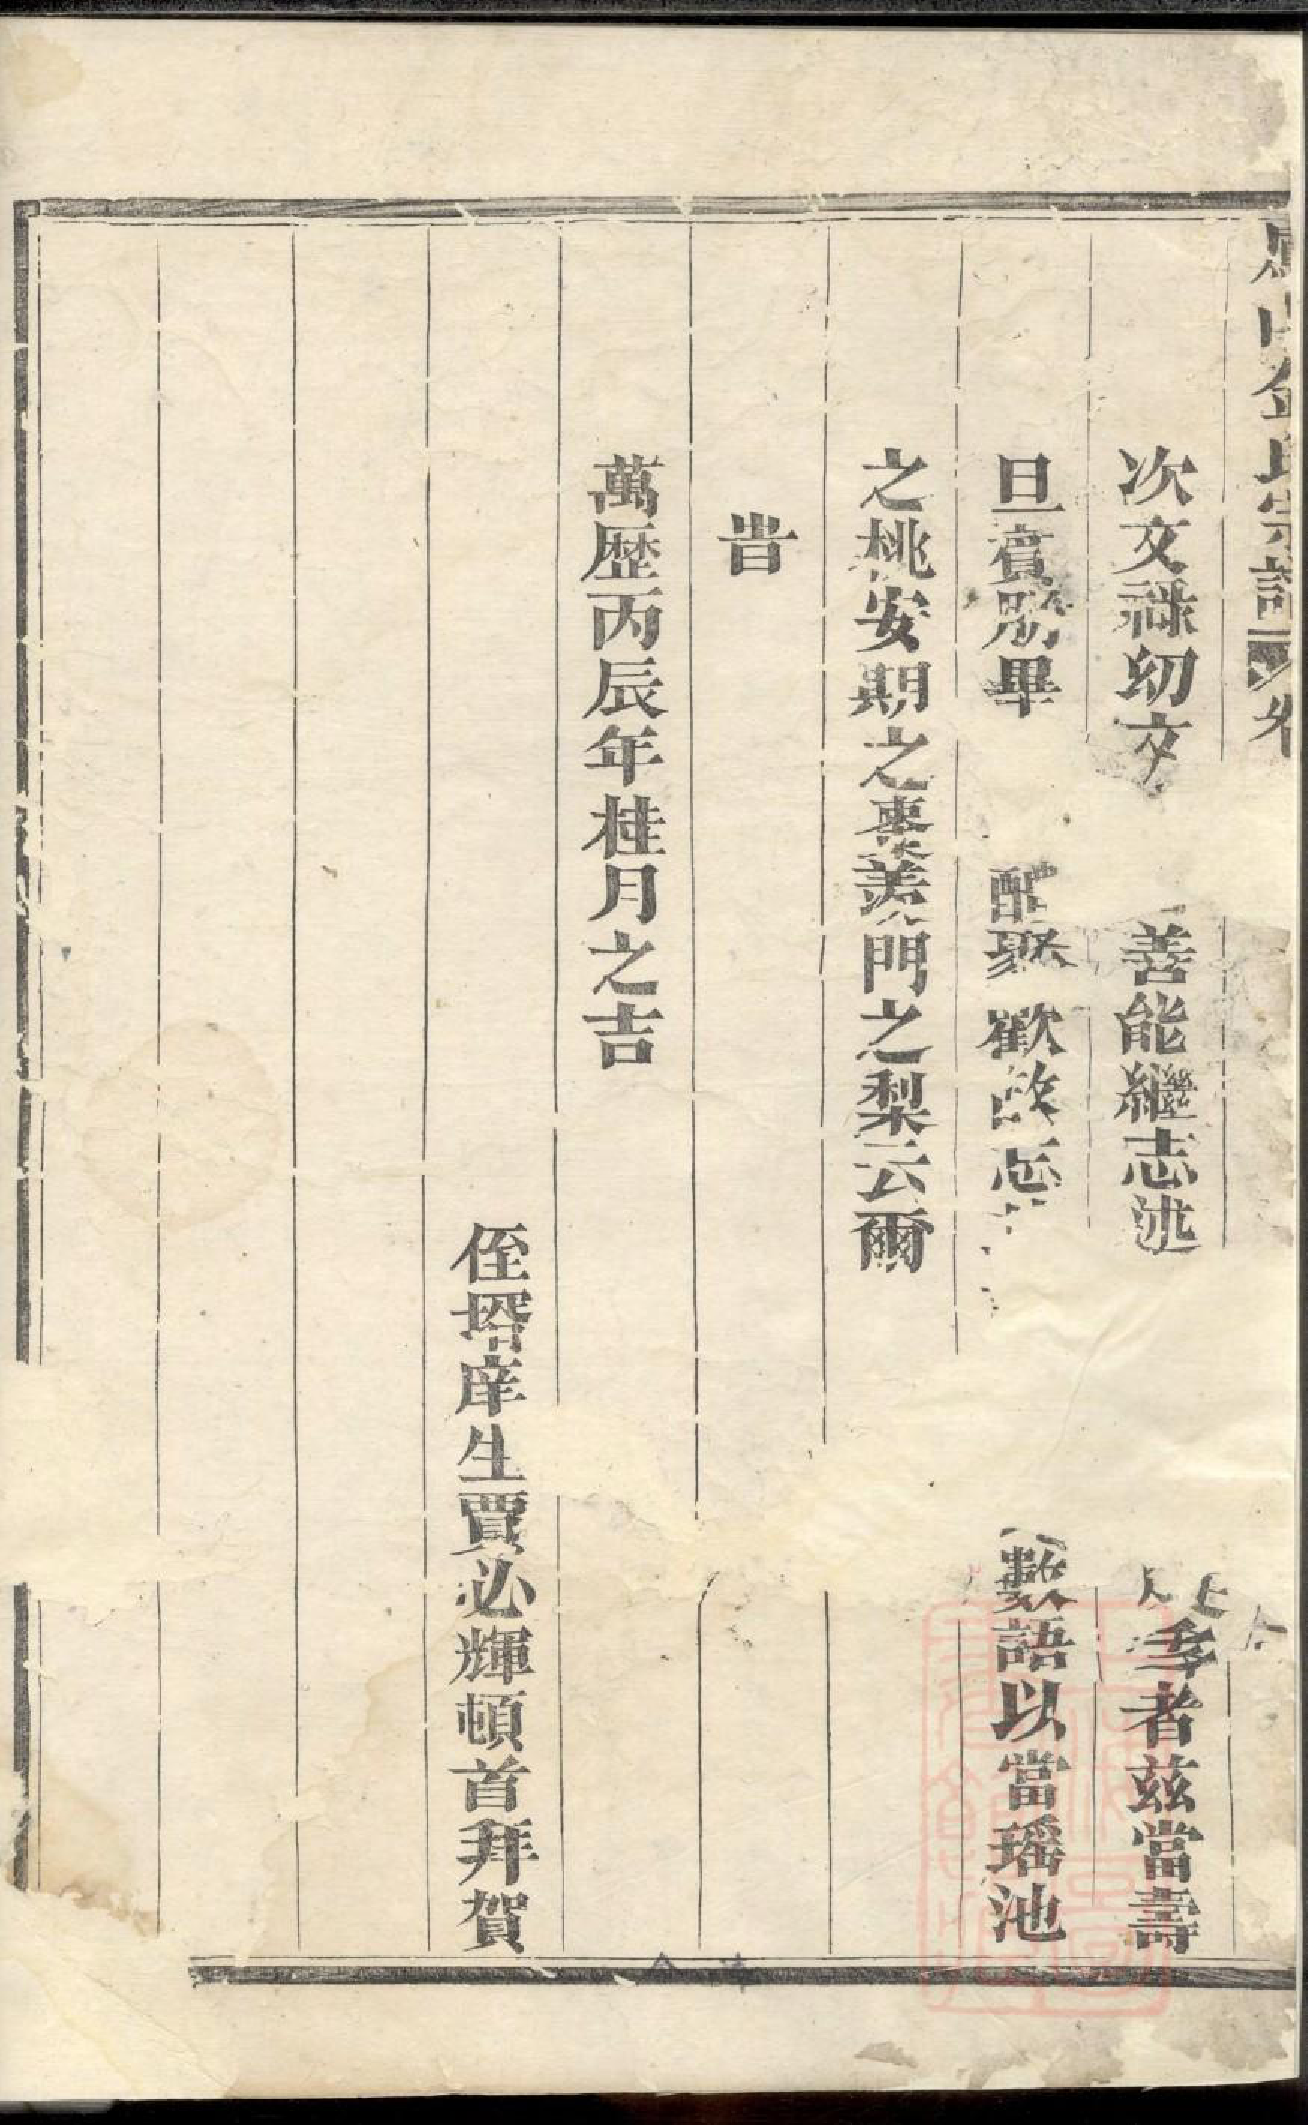 金氏宗譜 卷
次文祿幼文 善能繼志述 者兹當壽
旦賓朋畢 酣聚歡故志 數語以當瑶池
之桃安期之棗羨門之梨云爾
旹
萬歷丙辰年桂月之吉
侄壻庠生賈必輝頓首拜賀